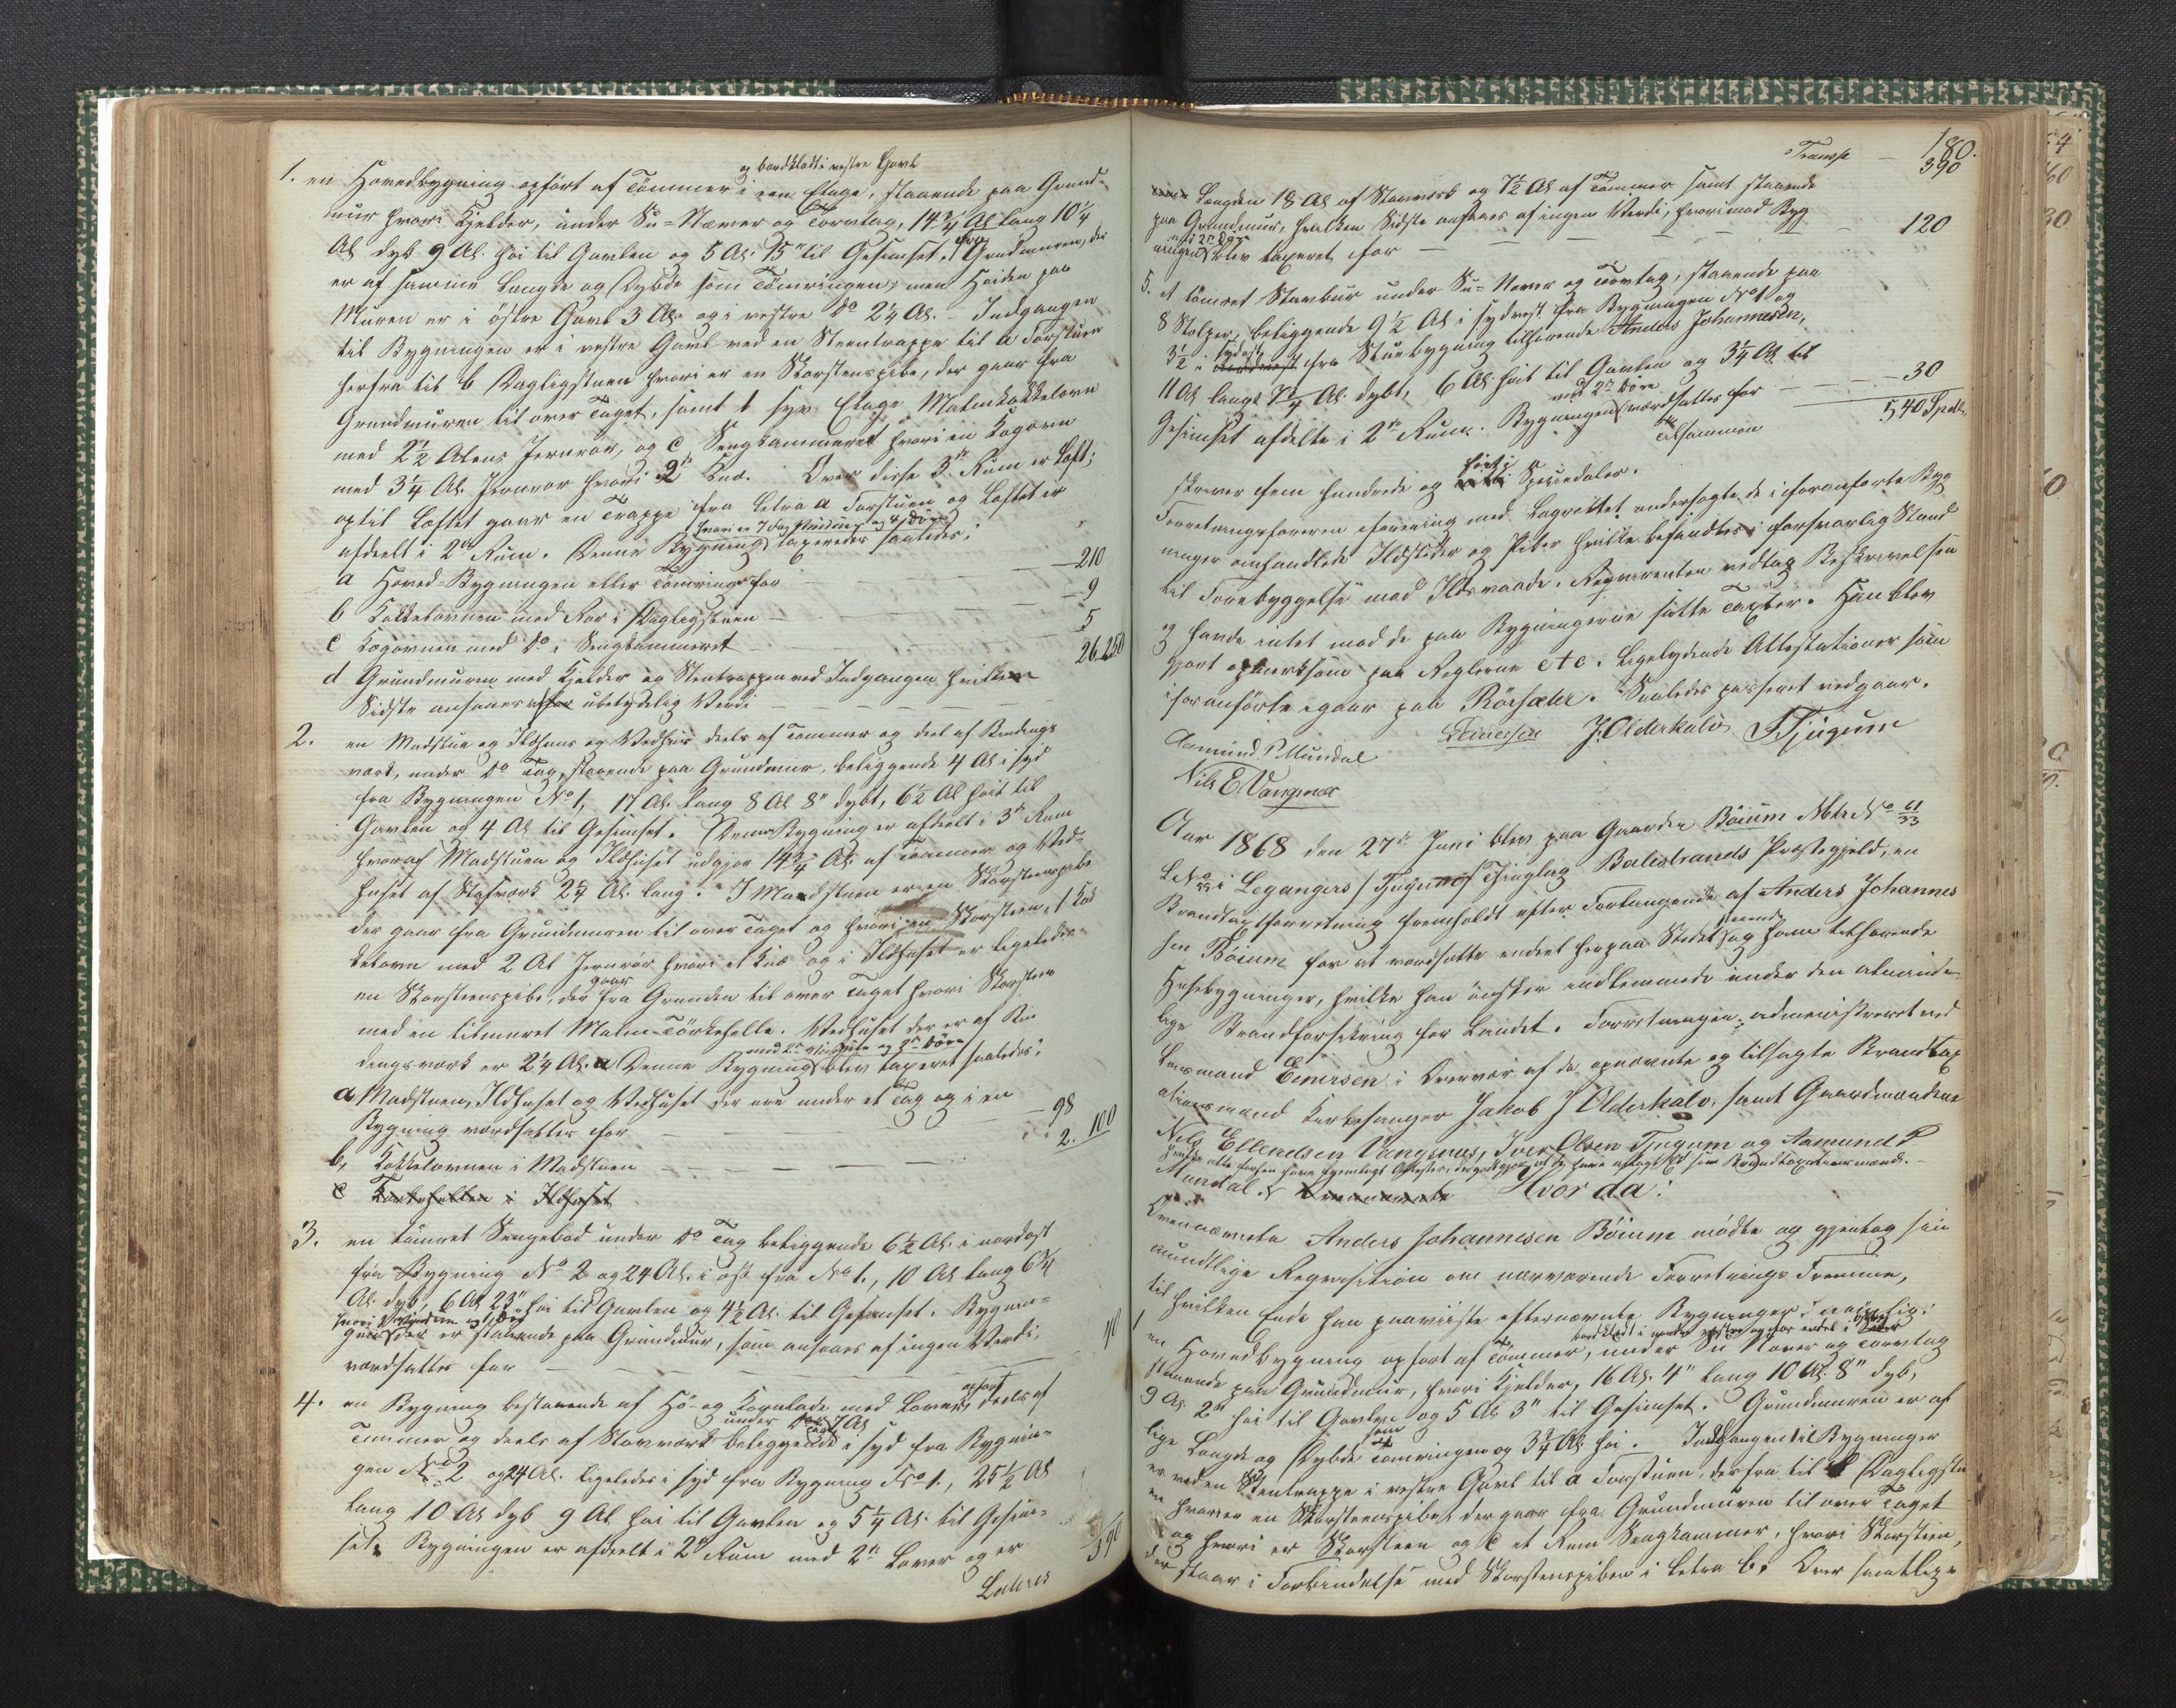 og bordklædt i vestre Gavl
1. en Hovedbygning opført af Tømmer i een Etage, staaende paa Grund-
mur hvori Kjelder, under Su-Næver og Torvtag, 14 3/4 Al lang 10 1/4
Al dyb 9 Al. høi til Gavlen og 5 Al. 15" til Gesimset, Grundmuren, der
er af samme Længde og Dybde som Tømringen; men Høiden paa
Muren er i østre Gavl 3 Al. og i vestre Do 2 1/4 Al. Indgangen
til Bygningen er i vestre Gavl ved en Steentrappe til a Forstuen
herfra til b Dagligstuen hvori er en Skorstenspibe, der gaar fra
Grundmuren til over Taget, samt 1 syv Etage Malmkakkelovn
med 2 1/2 Alens Jernrør, og c Sengkammeret hvori en Kogovn
med 3 1/4 Al. Jernrør hvori 2 Knæ. Over disse 3de Rum er Loft;
optil Loftet gaar en Trappe fra Litra a Forstuen og Loftet er
hvori er 7 Fag Vinduer og 4 Døre
afdeelt i 2de Rum. Denne Bygning taxeredes saaledes:
a Hoved-Bygningen eller Tømringen for — 210
b Kakkelovnen med Rør i Dagligstuen — 9
c Kogovnen med Do i Sengkammeret — 5
d Grundmuren med Kjelder og Stentrappen ved Indgangen hvilken 26. 250
Sidste ansaaes af ubetydelig Verdi
2. en Madstue og Ildhuus og Vedhuus deels af Tømmer og deel af Bindings
værk, under Do Tag, staaende paa Grundmuur, beliggende 4 Al i syd
fra Bygningen No 1, 17 Al. lang 8 Al 8" dybt, 6 1/2 Al høit til
Gavlen og 4 Al til Gesimset. Denne Bygning er afdeelt i 3de Rum
hvoraf Madstuen og Ildhuset udgjør 14 3/4 Al af Tømmer og Ved-
huset af Stafværk 2 1/4 Al. lang. I Madstuen er en Skorsteenspibe
der gaar fra Grundmuren til over Taget og hvori en Skorsteen, 1 Kak
kelovn med 2 Al Jernrør hvori et Knæ og i Ildhuset er ligeledes
en Skorsteenspibe, der gaar fra Grunden til over Taget hvori Skorsten
med en tilmuret Malm-Tørkehelle. Vedhuset der er af Bin
dingsværk er 2 1/4 Al. Denne Bygning blev taxeret saaledes:
a Madstuen, Ildhuset og Vedhuset der ere under et Tag og i en
Bygning værdsattes for — 98
b, Kakkelovnen i Madstuen — 2. 100
c Tørkehellen i Ildhuset
3. en tømret Sengebod under Do Tag beliggende 6 1/2 Al. i nordost
fra Bygning No 2 og 24 Al. i øst fra No 1., 10 Al lang 6 3/4
Al. dyb, 6 Al 23" høi til Gavlen og 4 1/2 Al. til Gesimset. Bygnin-
gen der er staaende paa Grundmur, som ansaaes af ingen Verdi,
værdsattes for — 40
4. en Bygning bestaaende af Hø- og Kornlade med Lover opført deels af
Tømmer og deels af Stavværk beliggende 7 Al i syd fra Bygnin-
gen No 2 og 24 Al. ligeledes i syd fra Bygning No 1., 25 1/2 Al
lang 10 Al dyb 9 Al høi til Gavlen og 5 1/4 Al. til Gesim-
set. Bygningen er afdeelt i 2de Rum med 2de Lover og er
390
Lateres
180.
Transp — 390
Længden 18 Al af Stavværk og 7 1/2 Al af Tømmer samt staaende
paa Grundmur, hvilken Sidste ansaaes af ingen Verdi, hvorimod Byg
ningen blev taxeret for — 120
5. et tømret Stavbur under Su-Næver og Torvtag, staaende paa
8 Stolper, beliggende 9 1/2 Al i sydvest fra Bygningen No 1 og
3 1/2 i sydost fra Stuebygning tilhørende Anders Johannesen,
11 Al langt 7 1/4 Al. dybt, 6 Al. høit til Gavlen og 3 1/4 Al. til
Gesimset afdelte i 2de Rum. Bygningen med 2de Døre værdsattes for — 30
Tilsammen 540 Spdlr
skriver fem hundrede og firti Speciedaler.
Forretningsføreren i forening med Lagrettet undersøgte de i foranførte Byg
ninger omhandlede Ildsteder og Piber hvilke befandtes i forsvarlig Stand
til Forebyggelse mod Ildsvaade. Reqvirenten vedtog Beskrivelsen
og havde intet mod de paa Bygningerne satte Taxter. Han blev
gjort opmerksom paa Reglerne etc. ligelydende Attestationer som
i foranførte igaar paa Rørsæter. Saaledes passeret vedgaar.
Einersen J. Olderkalv I Tjugum
Aamund P Mundal
Nils E Vangsnæs
Aar 1868 den 27de Juni blev paa Gaarden Bøium Mtr No 61/33
L No i Leganger / Tjugums / Thinglag Balestrands Præstegjeld, en
Brandtaxtforretning fremholdt efter Forlangende af Anders Johannes
sen Bøium for at værdsætte endeel herpaa Stedet staaende og ham tilhørende
Husebygninger, hvilke han ønsker indlemmede under den alminde-
lige Brandforsikring for Landet. Forretningen administreret ved
Lensmand Einersen i Overvær af de opnævnte og tilsagte Brandtax
ationsmænd Kirkesanger Jakob J Olderkalv, samt Gaardmændene
Nils Ellendsen Vangsnæs, Iver Olsen Tjugum og Aamund P
Mundal. Hvor da:
Ovennævnte Anders Johannesen Bøium mødte og gjentog sin
mundtlige Reqvisition om nærværende Forretnings Fremme,
til hvilken Ende han paaviiste efternævnte Bygninger, nemlig:
1 en Hovedbygning opført af Tømmer, under Su Næver og Torvtag
staaende paa Grundmuur, hvori Kjelder, 16 Al. 4" lang 10 Al. 8" dyb,
9 Al. 2" høi til Gavlen og 5 Al 3" til Gesimset. Grundmuren er af
lige Længde og Dybde som Tømringen og 3 1/4 Al høi. Indgangen til Bygningen
er ved en Stentrappe i vestre Gavl til a Forstuen, derfra til b Dagligstu
en hvori er en Skorsteenspibe der gaar fra Grundmuren til over Taget
og hvori er Skorsteen og c et Rum Sengkammer, hvori Skorsteen,
der staar i Forbindelse med Skorstenspiben i Litra b. Over samtlige